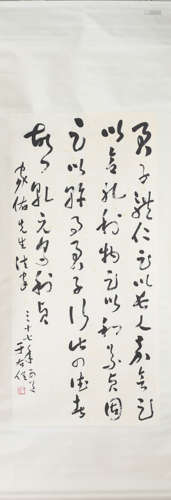 君子體仁足以長人嘉會足
以合禮利物足以和義貞固
足以幹事君子行此四德者
故曰乾元亨利貞
家佑先生法家
三十七年
于右任